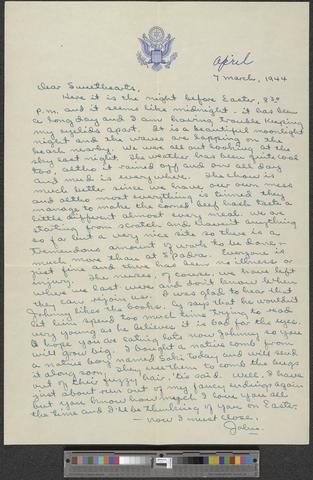 April
7 March, 1944
Dear Sweethearts,
Here it is the night before Easter, 8:30
p.m. and it seems like midnight - it has been
a long day and I am having trouble keeping
my eyelids apart. It is a beautiful moonlight
night and the waves are lapping on the
beach nearby. We were all out looking at the
sky last night. The weather has been quite cool
too, altho it rained off and on all day
and mud is everywhere. The chow is
much better since we have our own mess
and altho most everything is tinned they
manage to make the corned beef hash taste a
little different almost every meal. We are
starting from scratch and haven't anything
so far but a very nice site so there is a
tremendous amount of work to be done,
much more than at Spadra. Everyone is
just fine and there has been no illness or
injury. The nurses, of course, we have left
where we last were and don't know when
they can rejoin us. I was glad to hear that
Johnny likes the books. Cy says that he wouldn't
let him spend too much time trying to read
very young as he believes it is bad for the eyes.
I hope you are eating lots now Johnny so you
will grow big. I bought a native comb from
a native boy named Saki today and will send
it along soon. They use them to comb the bugs
out of their fuzzy hair, 'tis said. Well, I have
just about run out of my fancy endings again
but you know how much I love you all
the time and I'll be thinking of you on Easter.
- now I must close.
John.